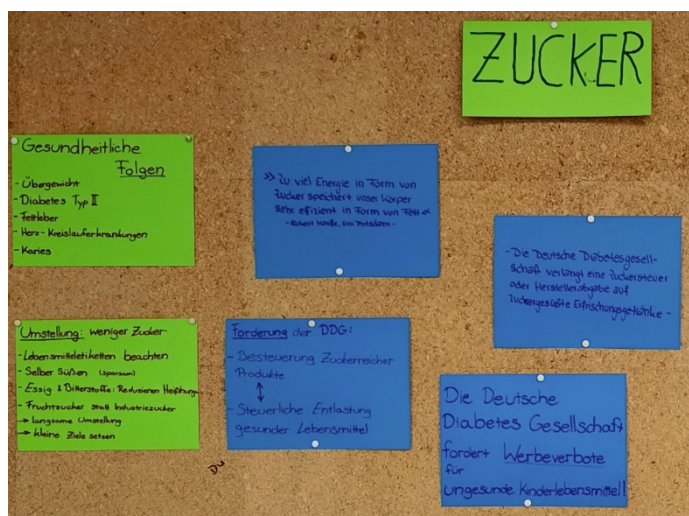 ZUCKER
Gesundheitliche
Folgen
- Übergewicht
- Diabetes Typ II
- Fettleber
- Herz-Kreislauferkrankungen
- Karies
» Zu viel Energie in Form von
Zucker speichert unser Körper
sehr effizient in Form von Fett «
- Robert Uni Potsdam -
- Die Deutsche Diabetesgesell-
schaft verlangt eine Zuckersteuer
oder Herstellerabgabe auf
zuckergesüßte Erfrischungsgetränke -
Umstellung: weniger Zucker
- Lebensmitteletiketten beachten
- Selber Süßen (sparsam)
- Essig & Bitterstoffe: Reduzieren Heißhunger
- Fruchtzucker statt Industriezucker
→ langsame Umstellung
→ kleine Ziele setzen
Forderung der DDG:
- Besteuerung Zuckerreicher
Produkte
↕
- Steuerliche Entlastung
gesunder Lebensmittel
Die Deutsche
Diabetes Gesellschaft
fordert Werbeverbote
für
ungesunde Kinderlebensmittel!